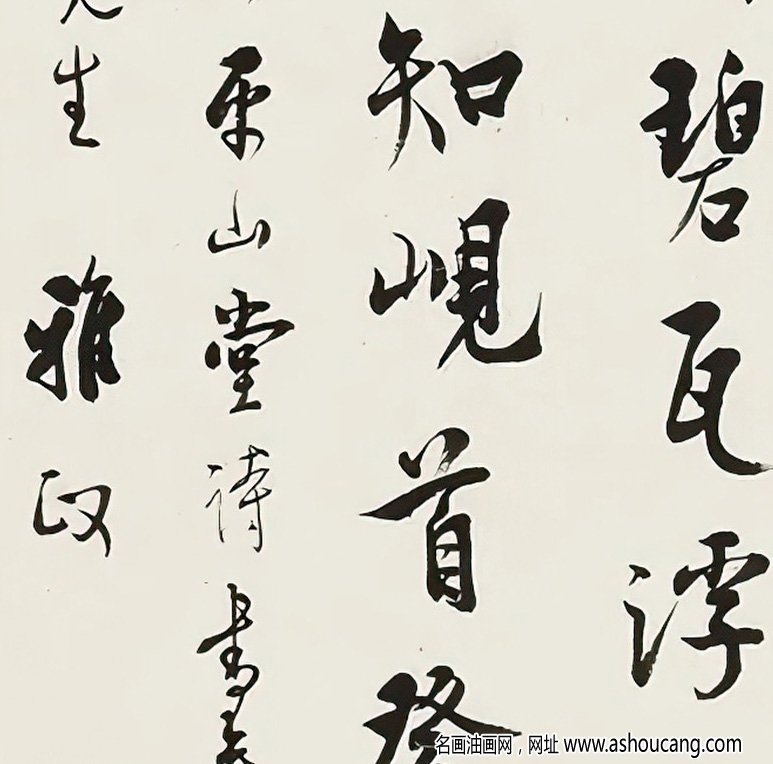 碧瓦浮
知峴首登
平山堂诗书
生雅政
名画油画网，网址 www.ashoucang.com